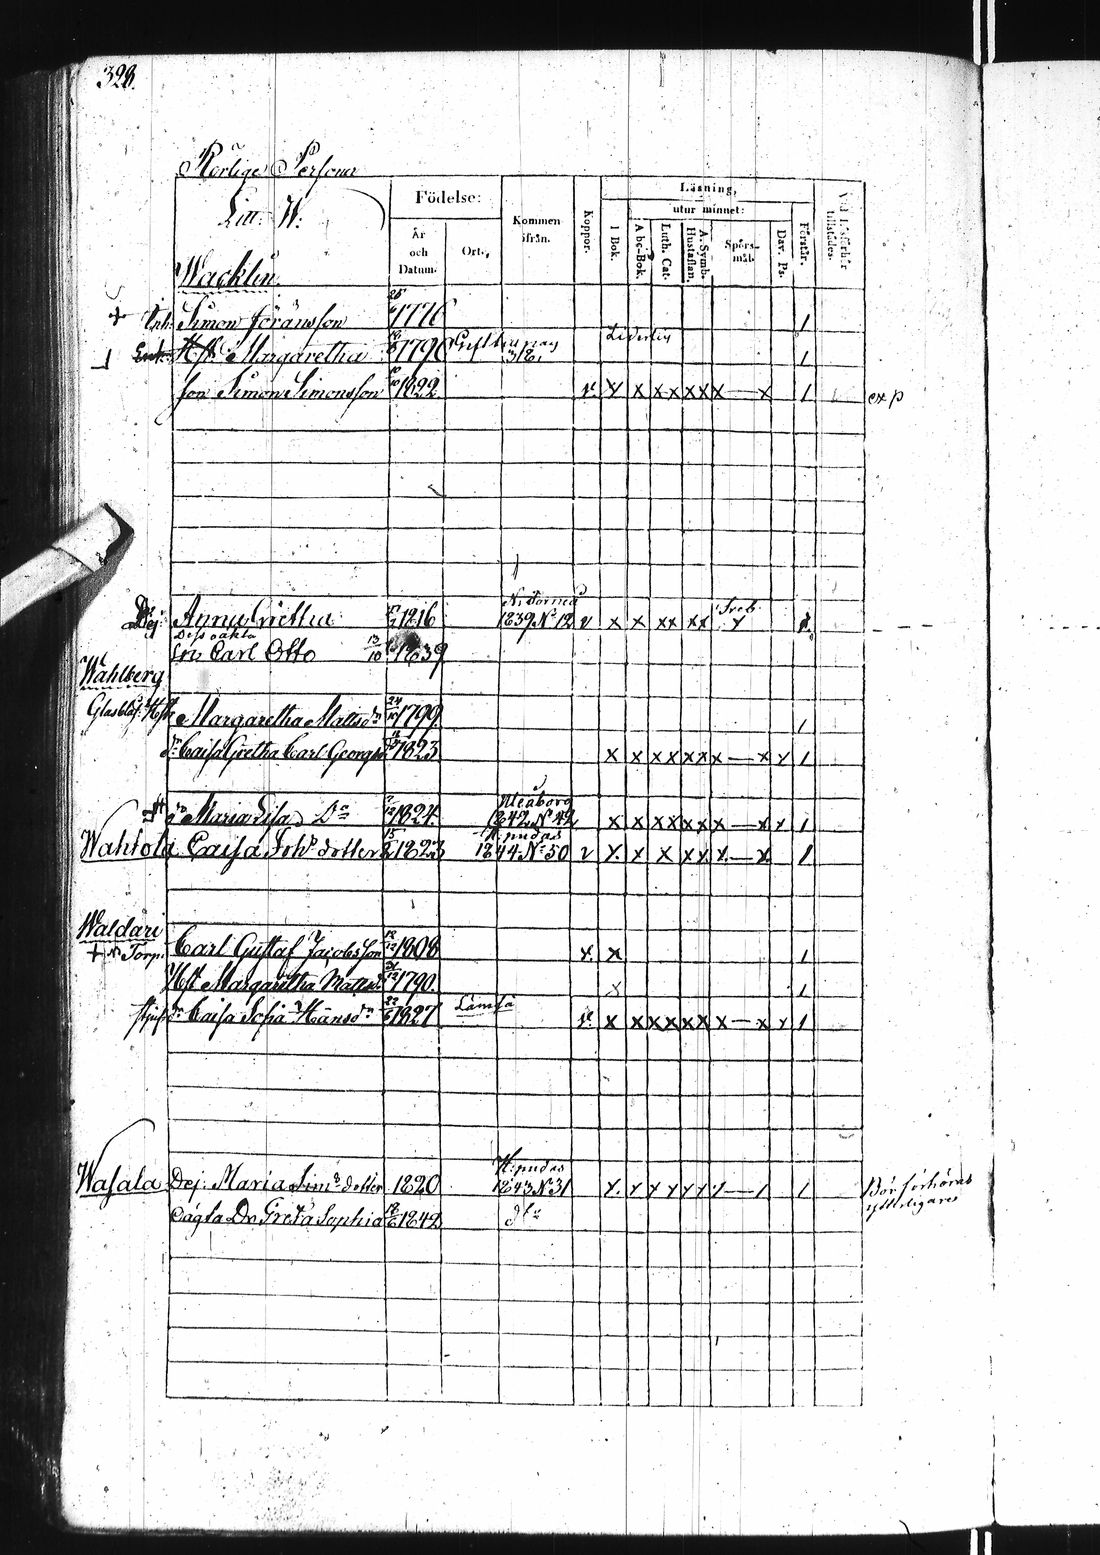 328.
Rörlige Personer
Litt. W.
Födelse:
År och Datum.
Ort.
Kommen ifrån.
Koppor.
Läsning,
utur minnet:
I Bok.
A bc-Bok.
Luth. Cat.
A. Symb. Hustaflan.
Spörs-mål.
Dav. Ps.
Förstår.
Vid Läsförhör tillstädes.
Wacklin.
+ Inh. Simon Jöransson 1776 1
Hst. Margaretha 1790 318. Liderlig 1
Son Simon Simonsson 1822 v. x x x x x x x — x 1 exp
Dej. Anna Grettha 1816 N. Torneå 1839 No 12 v x x xx xx Sveb. x 1
Dess oäkta
Son Carl Otto 13/10 1839
Wahlberg
Glasblås. Hst. Margaretha Mattsdr 24/10 1799. 1
dr Caisa Gretha Carl Georgsdr 1823 x x x x x x x — x x 1
dr Maria Lisa Do 1824. Uleåborg 1842 No 42 x x x x x x x — x x 1
Wahtola Caisa Johs dotter 15/2 1823 H:pudas 1844 No 50 v x. x x x x x — x 1
Waldari
+ N. Torp. Carl Gustaf Jacobsson 1808 x x 1
Hst Margaretha Mattsdr 1790. x 1
Styfdr Caisa Sofia Hansdr 22/6 1827 v. x x x x x x x — x x 1
Wasala Dej. Maria Sims dotter 1820 H:pudas 1843 No 31 x. x x x x x x — 1 1 Bör förhöras ytterligare
oägta Dr Greta Sophia 1842 do